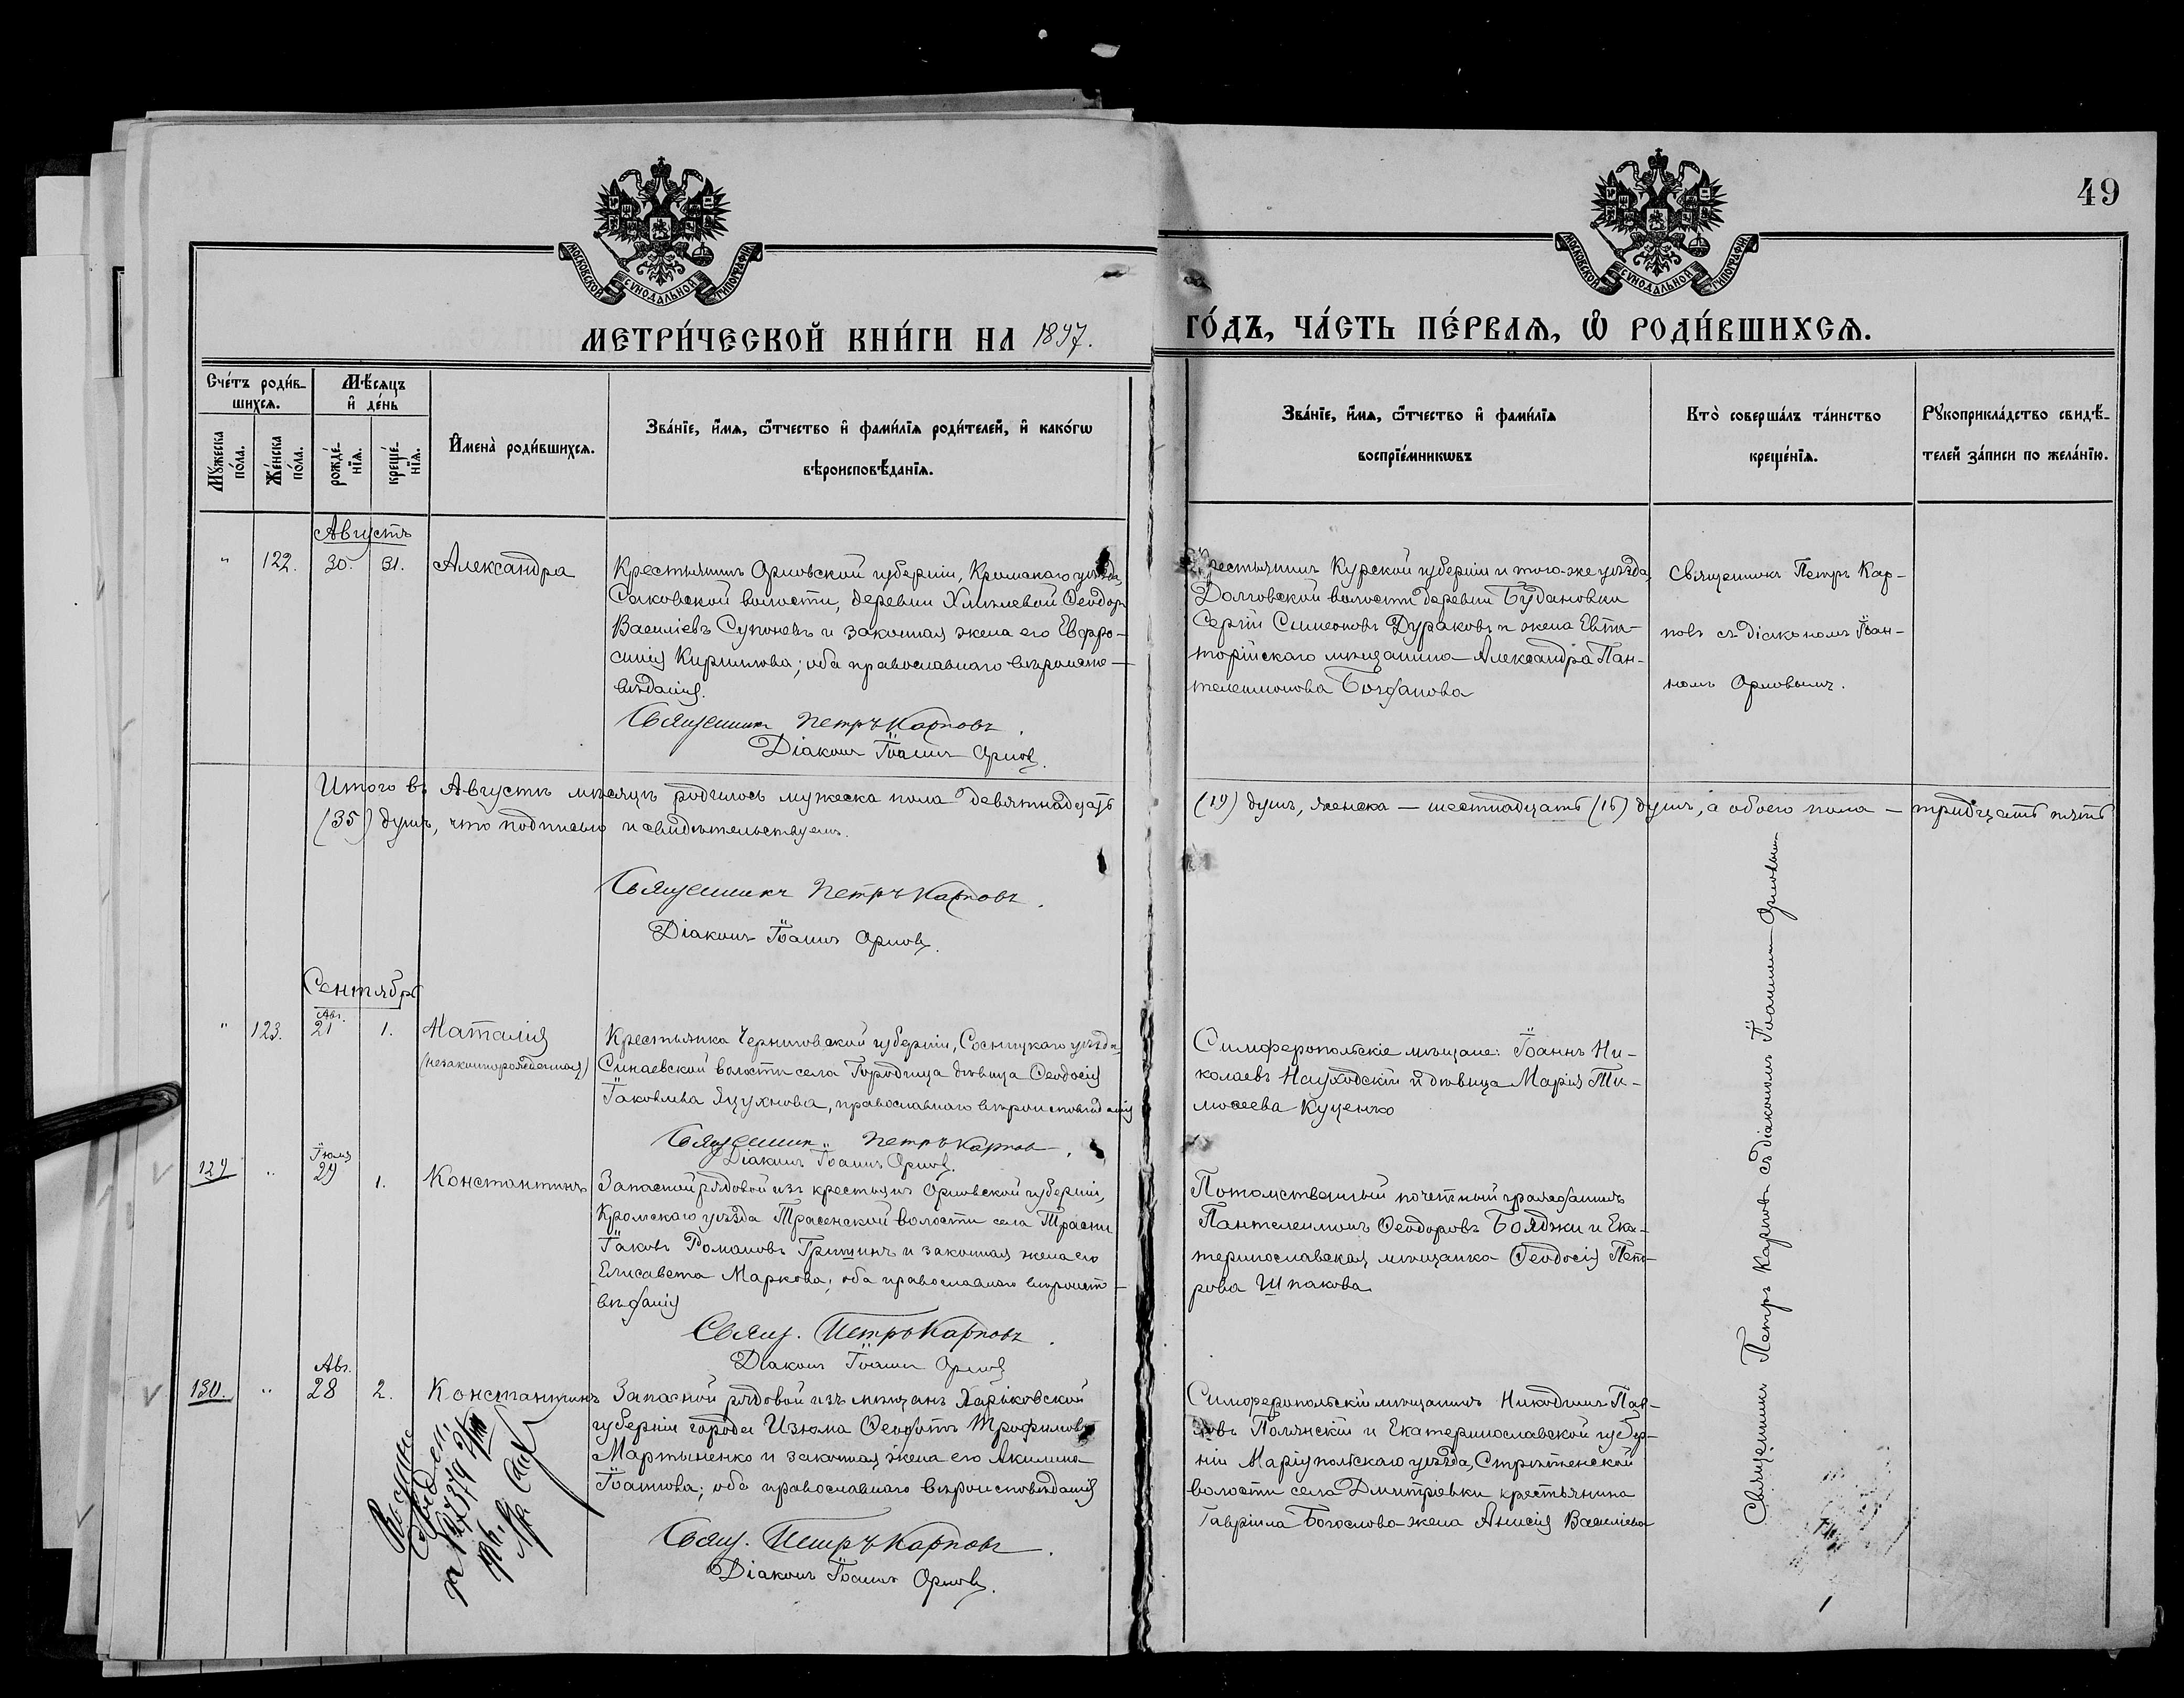 49
МОСКОВСКОЙ СУНОДАЛЬНОЙ ТИПОГРАФІИ
МОСКОВСКОЙ СУНОДАЛЬНОЙ ТИПОГРАФІИ
МЕТРИ́ЧЕСКОЙ КНИ́ГИ НА 1897. ГО́ДЪ, ЧА́СТЬ ПЕ́РВАѦ, Ѡ҆ РОДИ́ВШИХСѦ.
Сче́тъ роди́в-
шихсѧ.
Мꙋ́жеска по́ла.
Же́нска по́ла.
Мѣ́сѧцъ
и҆ де́нь
рожде́-
нїѧ.
креще́-
нїѧ.
И҆мена̀ роди́вшихсѧ.
Зва́нїе, и҆́мѧ, ѻ҆́тчество и҆ фамі́лїѧ роди́телей, и҆ како́гѡ
вѣроисповѣ́данїѧ.
Зва́нїе, и҆́мѧ, ѻ҆́тчество и҆ фамі́лїѧ
воспрїе́мникѡвъ
Кто̀ соверша́лъ та́инство
креще́нїѧ.
Рꙋкоприкла́дство свидѣ́-
телей за́писи по жела́нїю.
Августъ
" 122. 30. 31. Александра
Крестьянинъ Орловской губерніи, Кромскаго уѣзда,
Саковской волости, деревни Хмѣлевой Ѳеодоръ
Василіевъ Супоневъ и законная жена его Евфро-
синія Кириллова; оба православнаго вѣроиспо-
вѣданія.
Священникъ Петръ Карповъ.
Діаконъ Іоаннъ Орловъ.
Крестьянинъ Курской губерніи и того-же уѣзда,
Долговской волости деревни Будановки
Сергій Симеоновъ Дураковъ и жена Евпа-
торійскаго мѣщанина Александра Пан-
телеимонова Богданова
Священникъ Петръ Кар-
повъ съ діакономъ Іоан-
номъ Орловымъ.
Итого въ Августѣ мѣсяцѣ родилось мужеска пола девятнадцать (19) душъ, женска — шестнадцать (16) душъ, а обоего пола — тридцать пять
(35) душъ, что подписью и свидѣтельствуемъ.
Священникъ Петръ Карповъ.
Діаконъ Іоаннъ Орловъ.
Сентябрь
" 123. Авг. 21 1. Наталія
(незаконнорожденная)
Крестьянка Черниговской губерніи, Сосницкаго уѣзда,
Синаевской волости села Городища дѣвица Ѳеодосія
Іаковлева Яцухнова, православнаго вѣроисповѣданія
Священникъ Петръ Карповъ.
Діаконъ Іоаннъ Орловъ.
Симферопольскіе мѣщане: Іоаннъ Ни-
колаевъ Науходскій и дѣвица Марія Ти-
моѳеева Куценко
129 " Іюля 29 1. Константинъ
Запасной рядовой изъ крестьянъ Орловской губерніи,
Кромскаго уѣзда Трасенской волости села Трасни
Іаковъ Романовъ Гришинъ и законная жена его
Елисавета Маркова; оба православнаго вѣроиспо-
вѣданія
Свящ. Петръ Карповъ.
Діаконъ Іоаннъ Орловъ
Потомственный почетный гражданинъ
Пантелеимонъ Ѳеодоровъ Бояджи и Ека-
теринославская мѣщанка Ѳеодосія Пет-
рова Шпакова
130. " Авг. 28 2. Константинъ
Запасной рядовой изъ мѣщанъ Харьковской
губерніи города Изюма Ѳеодотъ Трофимовъ
Мартыненко и законная жена его Акилина
Іоаннова; оба православнаго вѣроисповѣданія
Свящ. Петръ Карповъ.
Діаконъ Іоаннъ Орловъ.
Симферопольскій мѣщанинъ Никодимъ Пав-
ловъ Полянскій и Екатеринославской губер-
ніи Маріупольскаго уѣзда, Стрѣтенской
волости села Дмитріевки крестьянина
Гавріила Богослова жена Анисія Василіева
Священникъ Петръ Карповъ съ діакономъ Іоанномъ Орловымъ